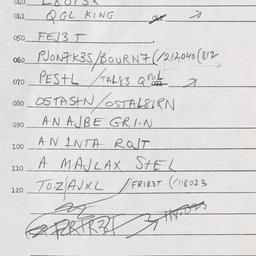 040
041 QGL KING
050 FEJ3T
060 PJON7K3S/BOURN7(/212040(812
070 PES+L /TAL83 Q
080 OSTAS+N /OSTAL81RN
090 AN AJBE GRI·N
100 AN INTA ROJT
110 A MAJLAX S+EL
120 TO·Z/AJXL /FR1B3T (/118023